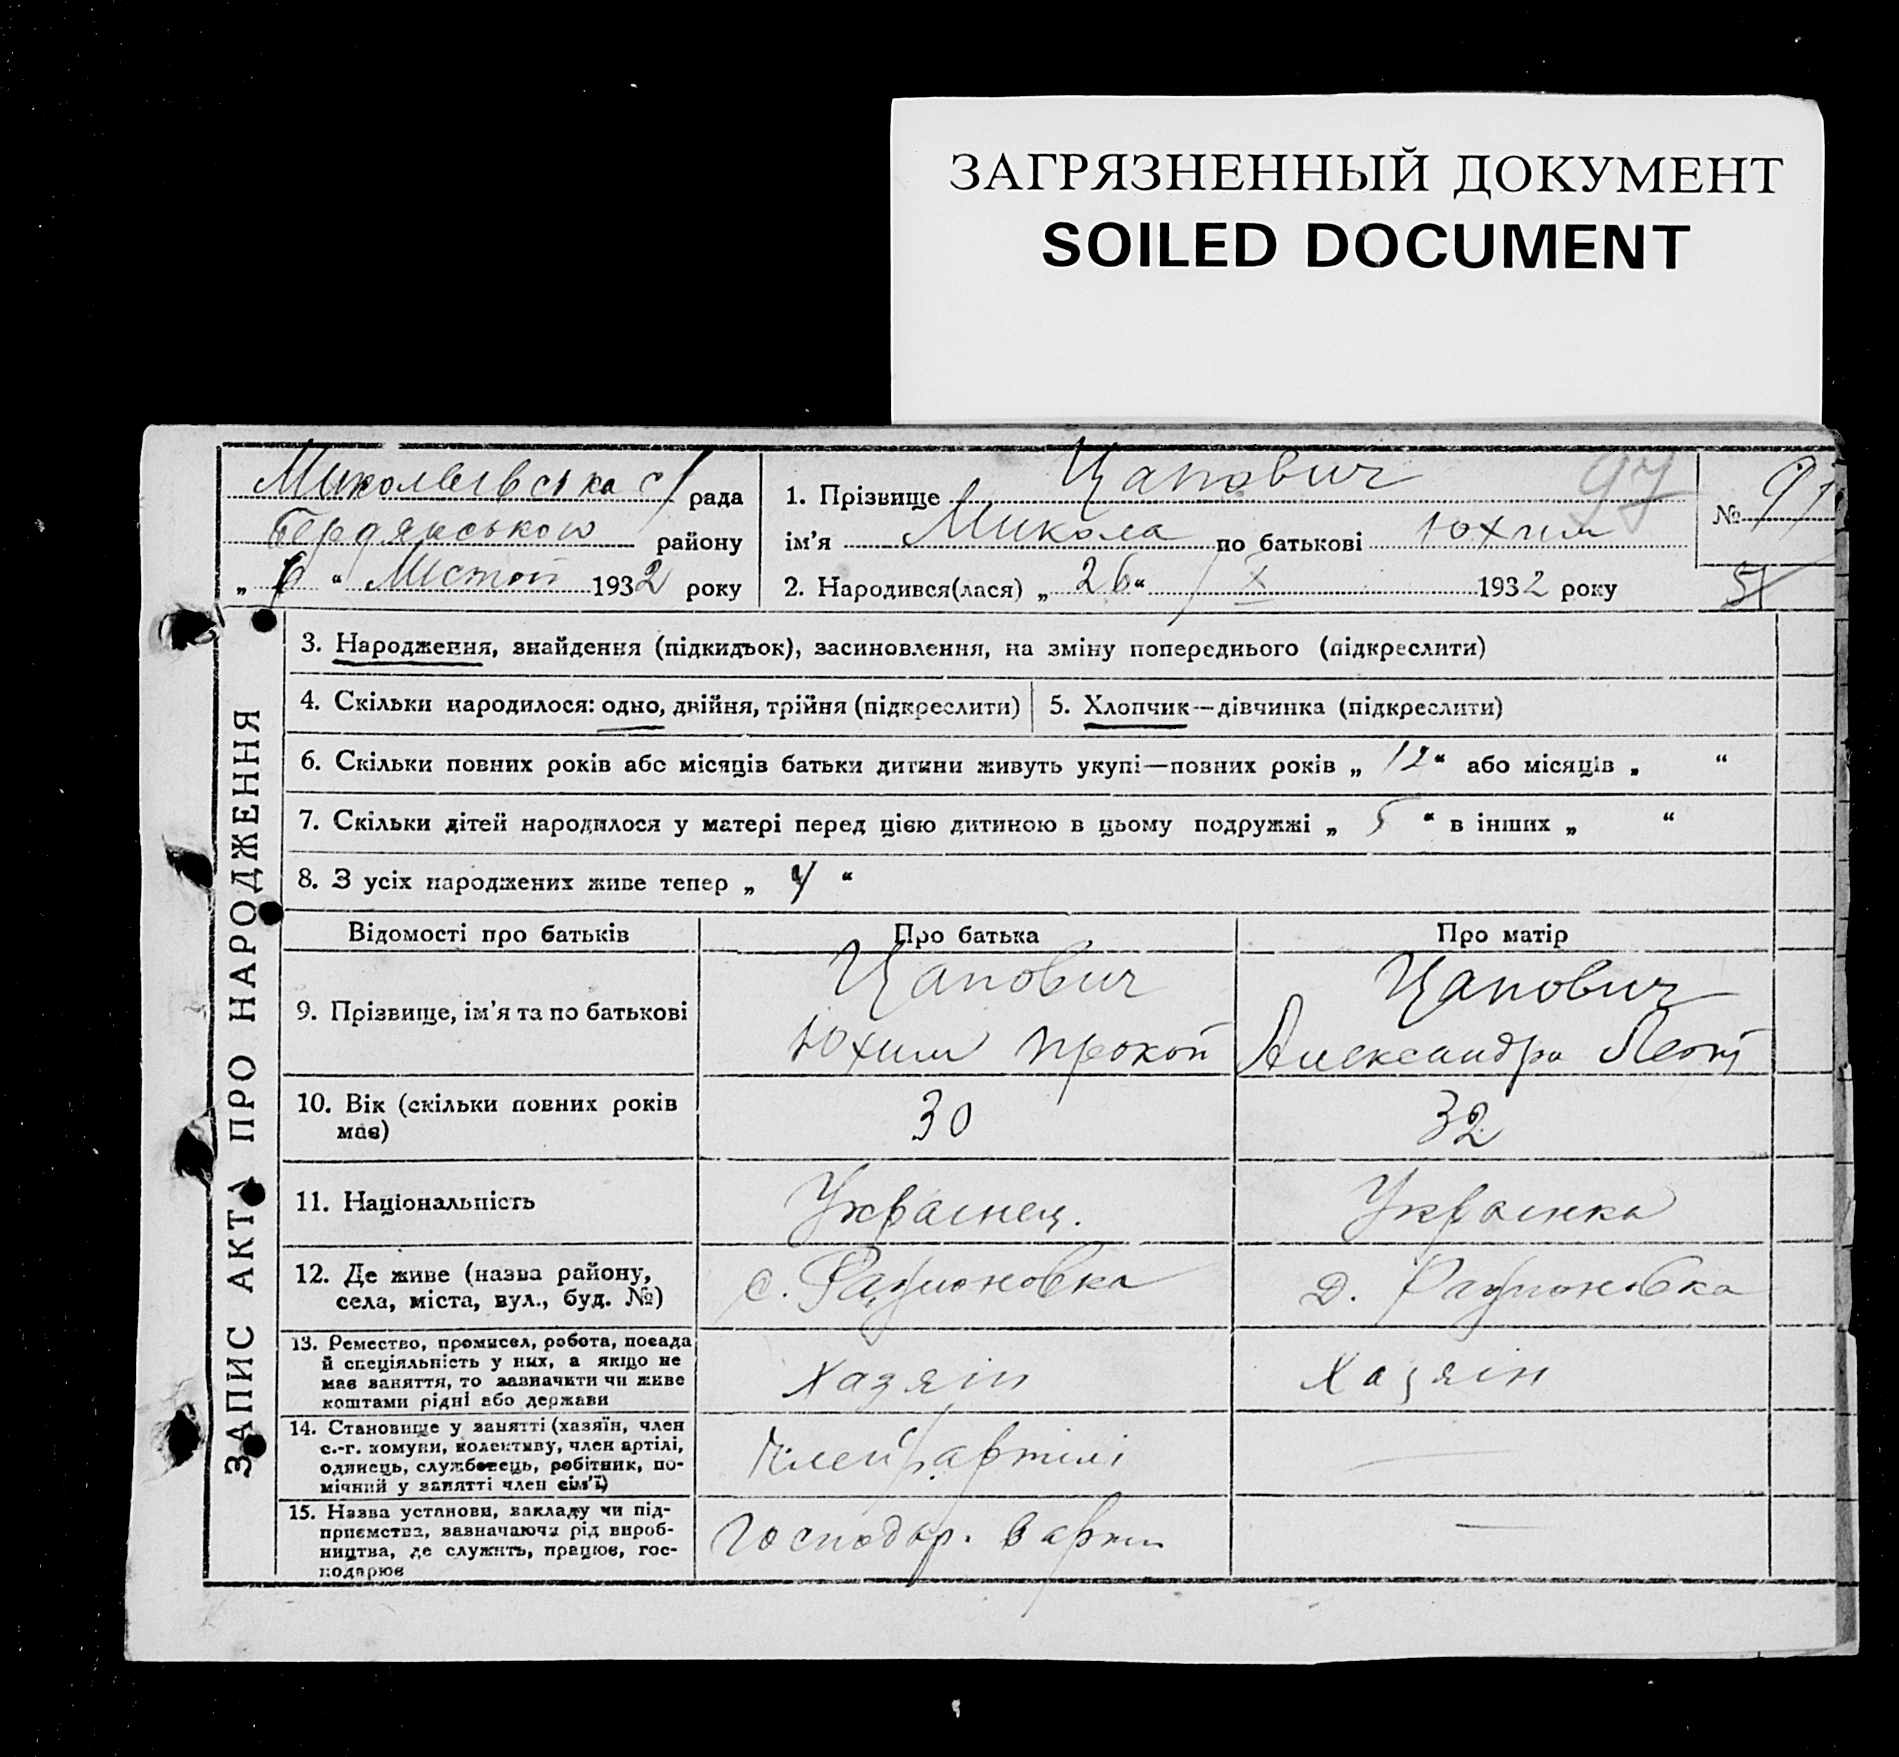 ЗАГРЯЗНЕННЫЙ ДОКУМЕНТ
SOILED DOCUMENT
Миколаівська с/ рада
Бердянського району
„ 6 “ Листоп 1932 року
1. Прізвище Цапович 97
ім’я Микола по батькові Юхим
2. Народився(лася) „ 26 “ / X 1932 року
№ 97
ЗАПИС АКТА ПРО НАРОДЖЕННЯ
3. Народження, знайдення (підкидьок), засиновлення, на зміну попереднього (підкреслити)
4. Скільки народилося: одно, двійня, трійня (підкреслити)
5. Хлопчик—дівчинка (підкреслити)
6. Скільки повних років або місяців батьки дитини живуть укупі—повних років „ 12 “ або місяців „ “
7. Скільки дітей народилося у матері перед цією дитиною в цьому подружжі „ 5 “ в інших „ “
8. З усіх народжених живе тепер „ 4 “
Відомості про батьків Про батька Про матір
9. Прізвище, ім’я та по батькові
Цапович
Юхим Прокоп
Цапович
Александра Леонт
10. Вік (скільки повних років
має)
30
32
11. Національність
Украінец.
Украінка
12. Де живе (назва району,
села, міста, вул., буд. №)
с.
Д.
13. Ремество, промисел, робота, посада
й спеціяльність у них, а якщо не
має заняття, то зазначити чи живе
коштами рідні або держави
Хазяін
Хазяін
14. Становище у занятті (хазяїн, член
с.-г. комуни, колективу, член артілі,
одинець, службовець, робітник, по-
мічний у занятті член сім’ї)
Член с/г. артілі
—
15. Назва установи, закладу чи під-
приємства, зазначаючи рід вироб-
ництва, де служить, працює, гос-
подарює
Господар. в арт
—